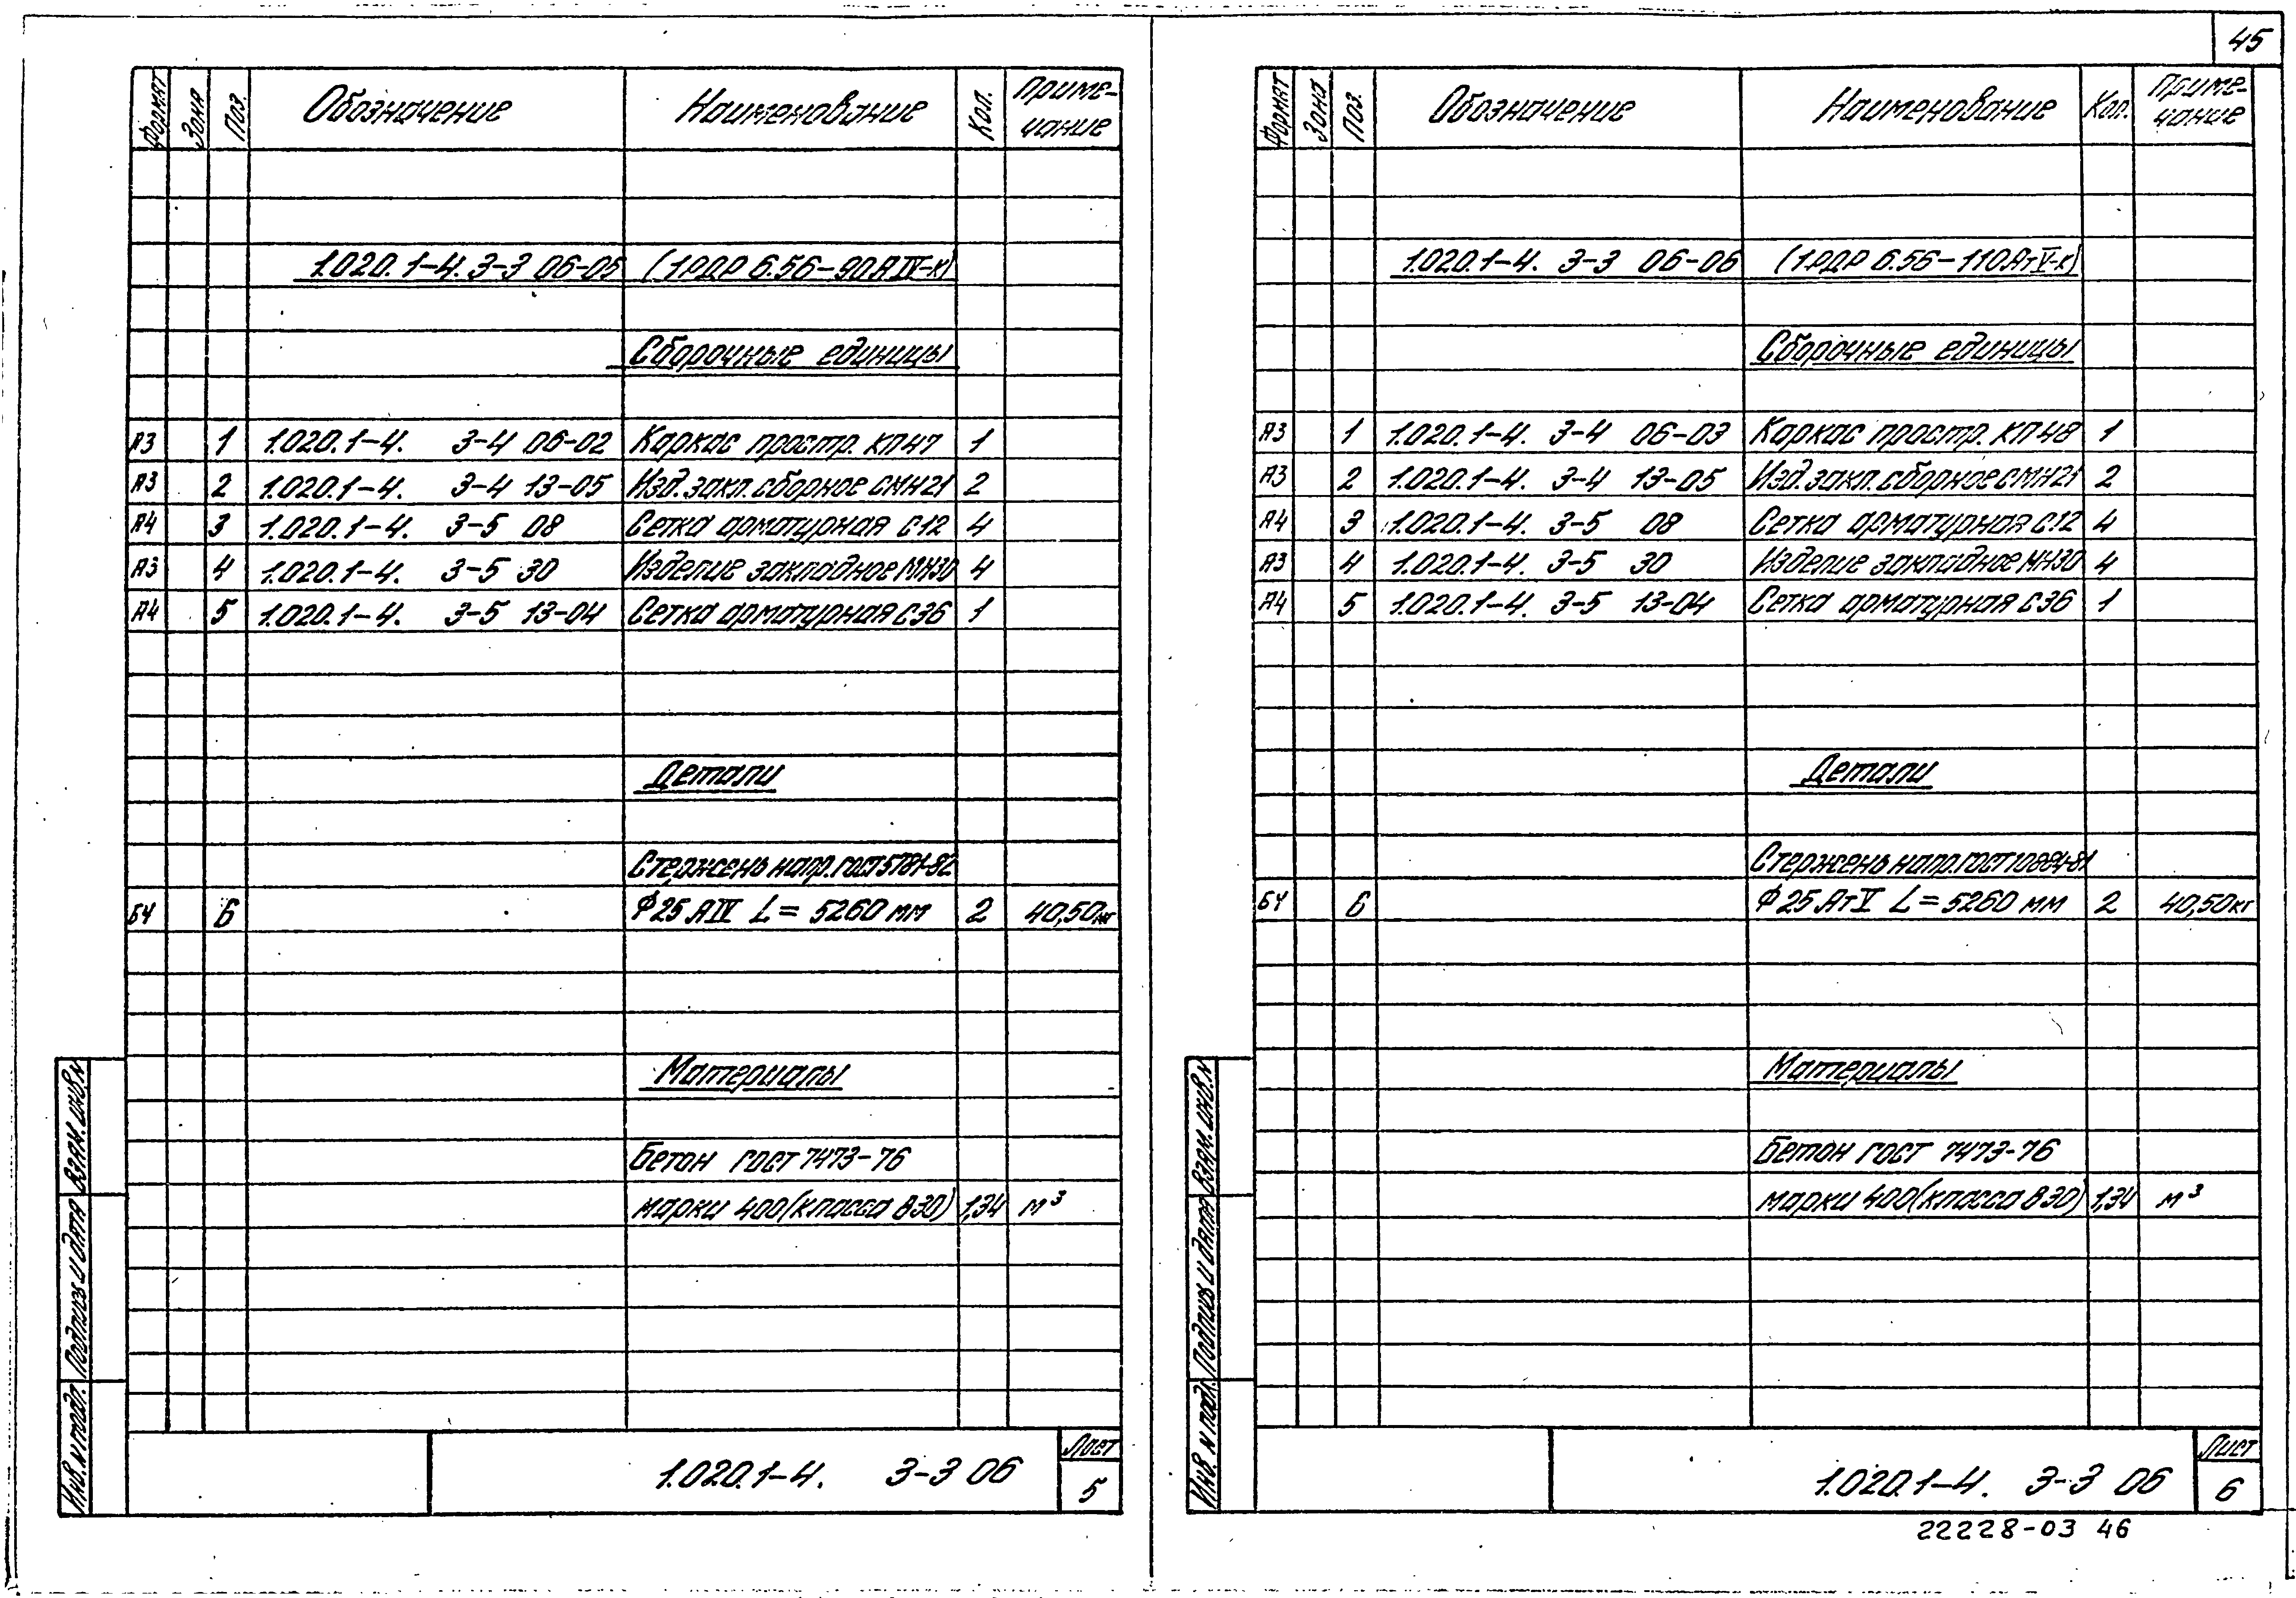 45
Формат Зона Поз. Обозначение Наименование Кол. Приме-
чание
1.020.1-4. 3-3 06-05 (1РДР 6.56-90АIV-К)
Сборочные единицы
А3 1 1.020.1-4. 3-4 06-02 Каркас простр. КП47 1
А3 2 1.020.1-4. 3-4 13-05 Изд. закл. сборное СМН21 2
А4 3 1.020.1-4. 3-5 08 Сетка арматурная С12 4
А3 4 1.020.1-4. 3-5 30 Изделие закладное МН30 4
А4 5 1.020.1-4. 3-5 13-04 Сетка арматурная С36 1
Детали
Стержень напр. ГОСТ 5781-82
БЧ 6 Ф25 АIV L=5260 мм 2 40,50кг
Материалы
Бетон ГОСТ 7473-76
марки 400(класса В30) 1,34 м³
Взам. инв. N
Подпись и дата
Инв. N подл.
1.020.1-4. 3-3 06
Лист
5
Формат Зона Поз. Обозначение Наименование Кол. Приме-
чание
1.020.1-4. 3-3 06-06 (1РДР 6.56-110АтV-К)
Сборочные единицы
А3 1 1.020.1-4. 3-4 06-03 Каркас простр. КП48 1
А3 2 1.020.1-4. 3-4 13-05 Изд. закл. сборное СМН21 2
А4 3 1.020.1-4. 3-5 08 Сетка арматурная С12 4
А3 4 1.020.1-4. 3-5 30 Изделие закладное МН30 4
А4 5 1.020.1-4. 3-5 13-04 Сетка арматурная С36 1
Детали
Стержень напр. ГОСТ 10884-81
БЧ 6 Ф25 АтV L=5260 мм 2 40,50кг
Материалы
Бетон ГОСТ 7473-76
марки 400(класса В30) 1,34 м³
Взам. инв. N
Подпись и дата
Инв. N подл.
1.020.1-4. 3-3 06
Лист
6
22228-03 46